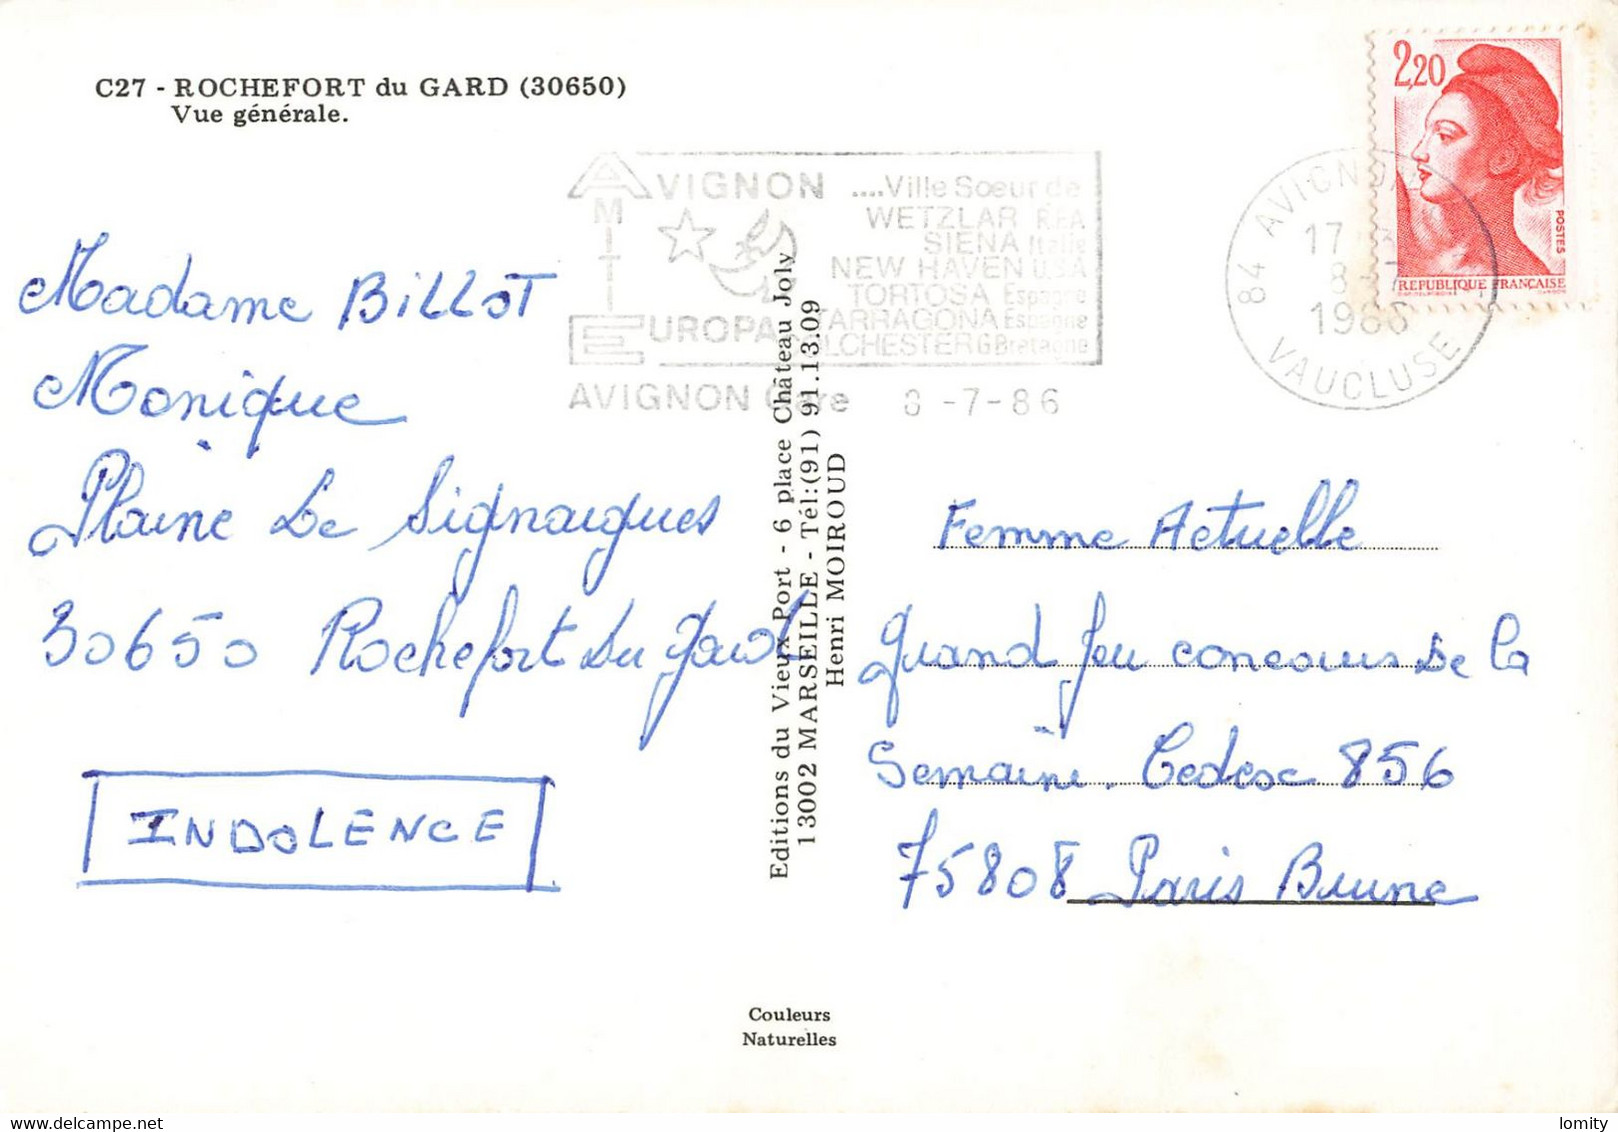 C27 - ROCHEFORT du GARD (30650)
Vue générale.
2,20
POSTES
REPUBLIQUE FRANÇAISE
AVIGNON ....Ville Sœur de
AMITIE
WETZLAR RFA
SIENA Italie
NEW HAVEN U.S.A
TORTOSA Espagne
TARRAGONA Espagne
COLCHESTER G Bretagne
EUROPA
AVIGNON Gare 8-7-86
84 AVIGNON
17 H
8-7
1986
VAUCLUSE
Madame BILLOT
Monique
Plaine de Signargues
30650 Rochefort du Gard
INDOLENCE
Editions du Vieux Port - 6 place Château Joly
13002 MARSEILLE - Tél:(91) 91.13.09
Henri MOIROUD
Femme Actuelle
Grand Jeu concours de la
Semaine. Cedex 856
75808 Paris Brune
Couleurs
Naturelles
lomity